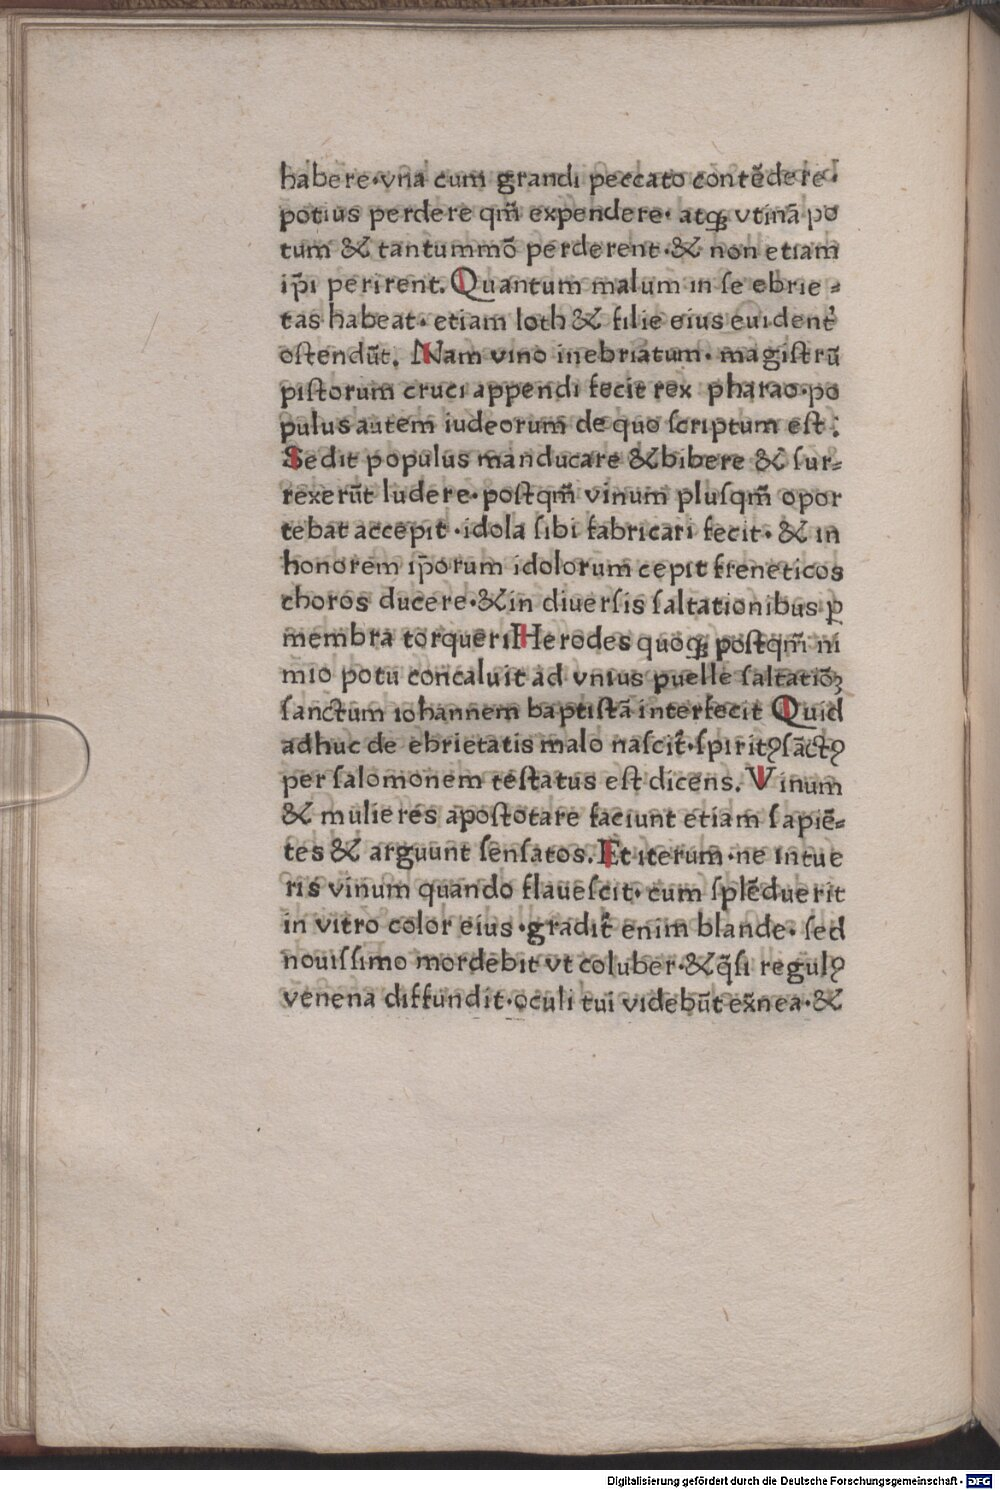 habere·vna cum grandi peccato contēdere·
potius perdere qm̄ expendere· atqꝫ vtinā po
tum & tantummō perderent·& non etiam
ip̄i perirent. Quantum malum in ſe ebrie⸗
tas habeat· etiam loth & filie eius euident᷑
oſtendūt. Nam vino inebriatum· magiſtrū
piſtorum cruci appendi fecit rex pharao·po
pulus autem iudeorum de quo ſcriptum eſt :
Sedit populus manducare & bibere & ſur⸗
rexerūt ludere·poſtqm̄ vinum pluſqm̄ opor
tebat accepit ·idola ſibi fabricari fecit· & in
honorem ip̄orum idolorum cepit freneticos
choros ducere·& in diuerſis ſaltationibus ꝑ
membra torqueri Herodes quoqꝫ poſtqm̄ ni
mio potu concaluit ad vnius puelle ſaltatiōꝫ
ſanctum iohannem baptiſtā interfecit Quid
adhuc de ebrietatis malo naſcit᷑·ſpiritꝰ ſāctꝰ
per ſalomonem teſtatus eſt dicens. Vinum
& mulieres apoſtotare faciunt etiam ſapiē⸗
tes & arguunt ſenſatos. Et iterum·ne intue
ris vinum quando flaueſcit· cum ſplēduerit
in vitro color eius ·gradit᷑ enim blande· ſed
nouiſſimo mordebit vt coluber·& q̄ſi regulꝰ
venena diffundit·oculi tui videbūt ex̄nea·&
Digitalisierung gefördert durch die Deutsche Forschungsgemeinschaft - DFG